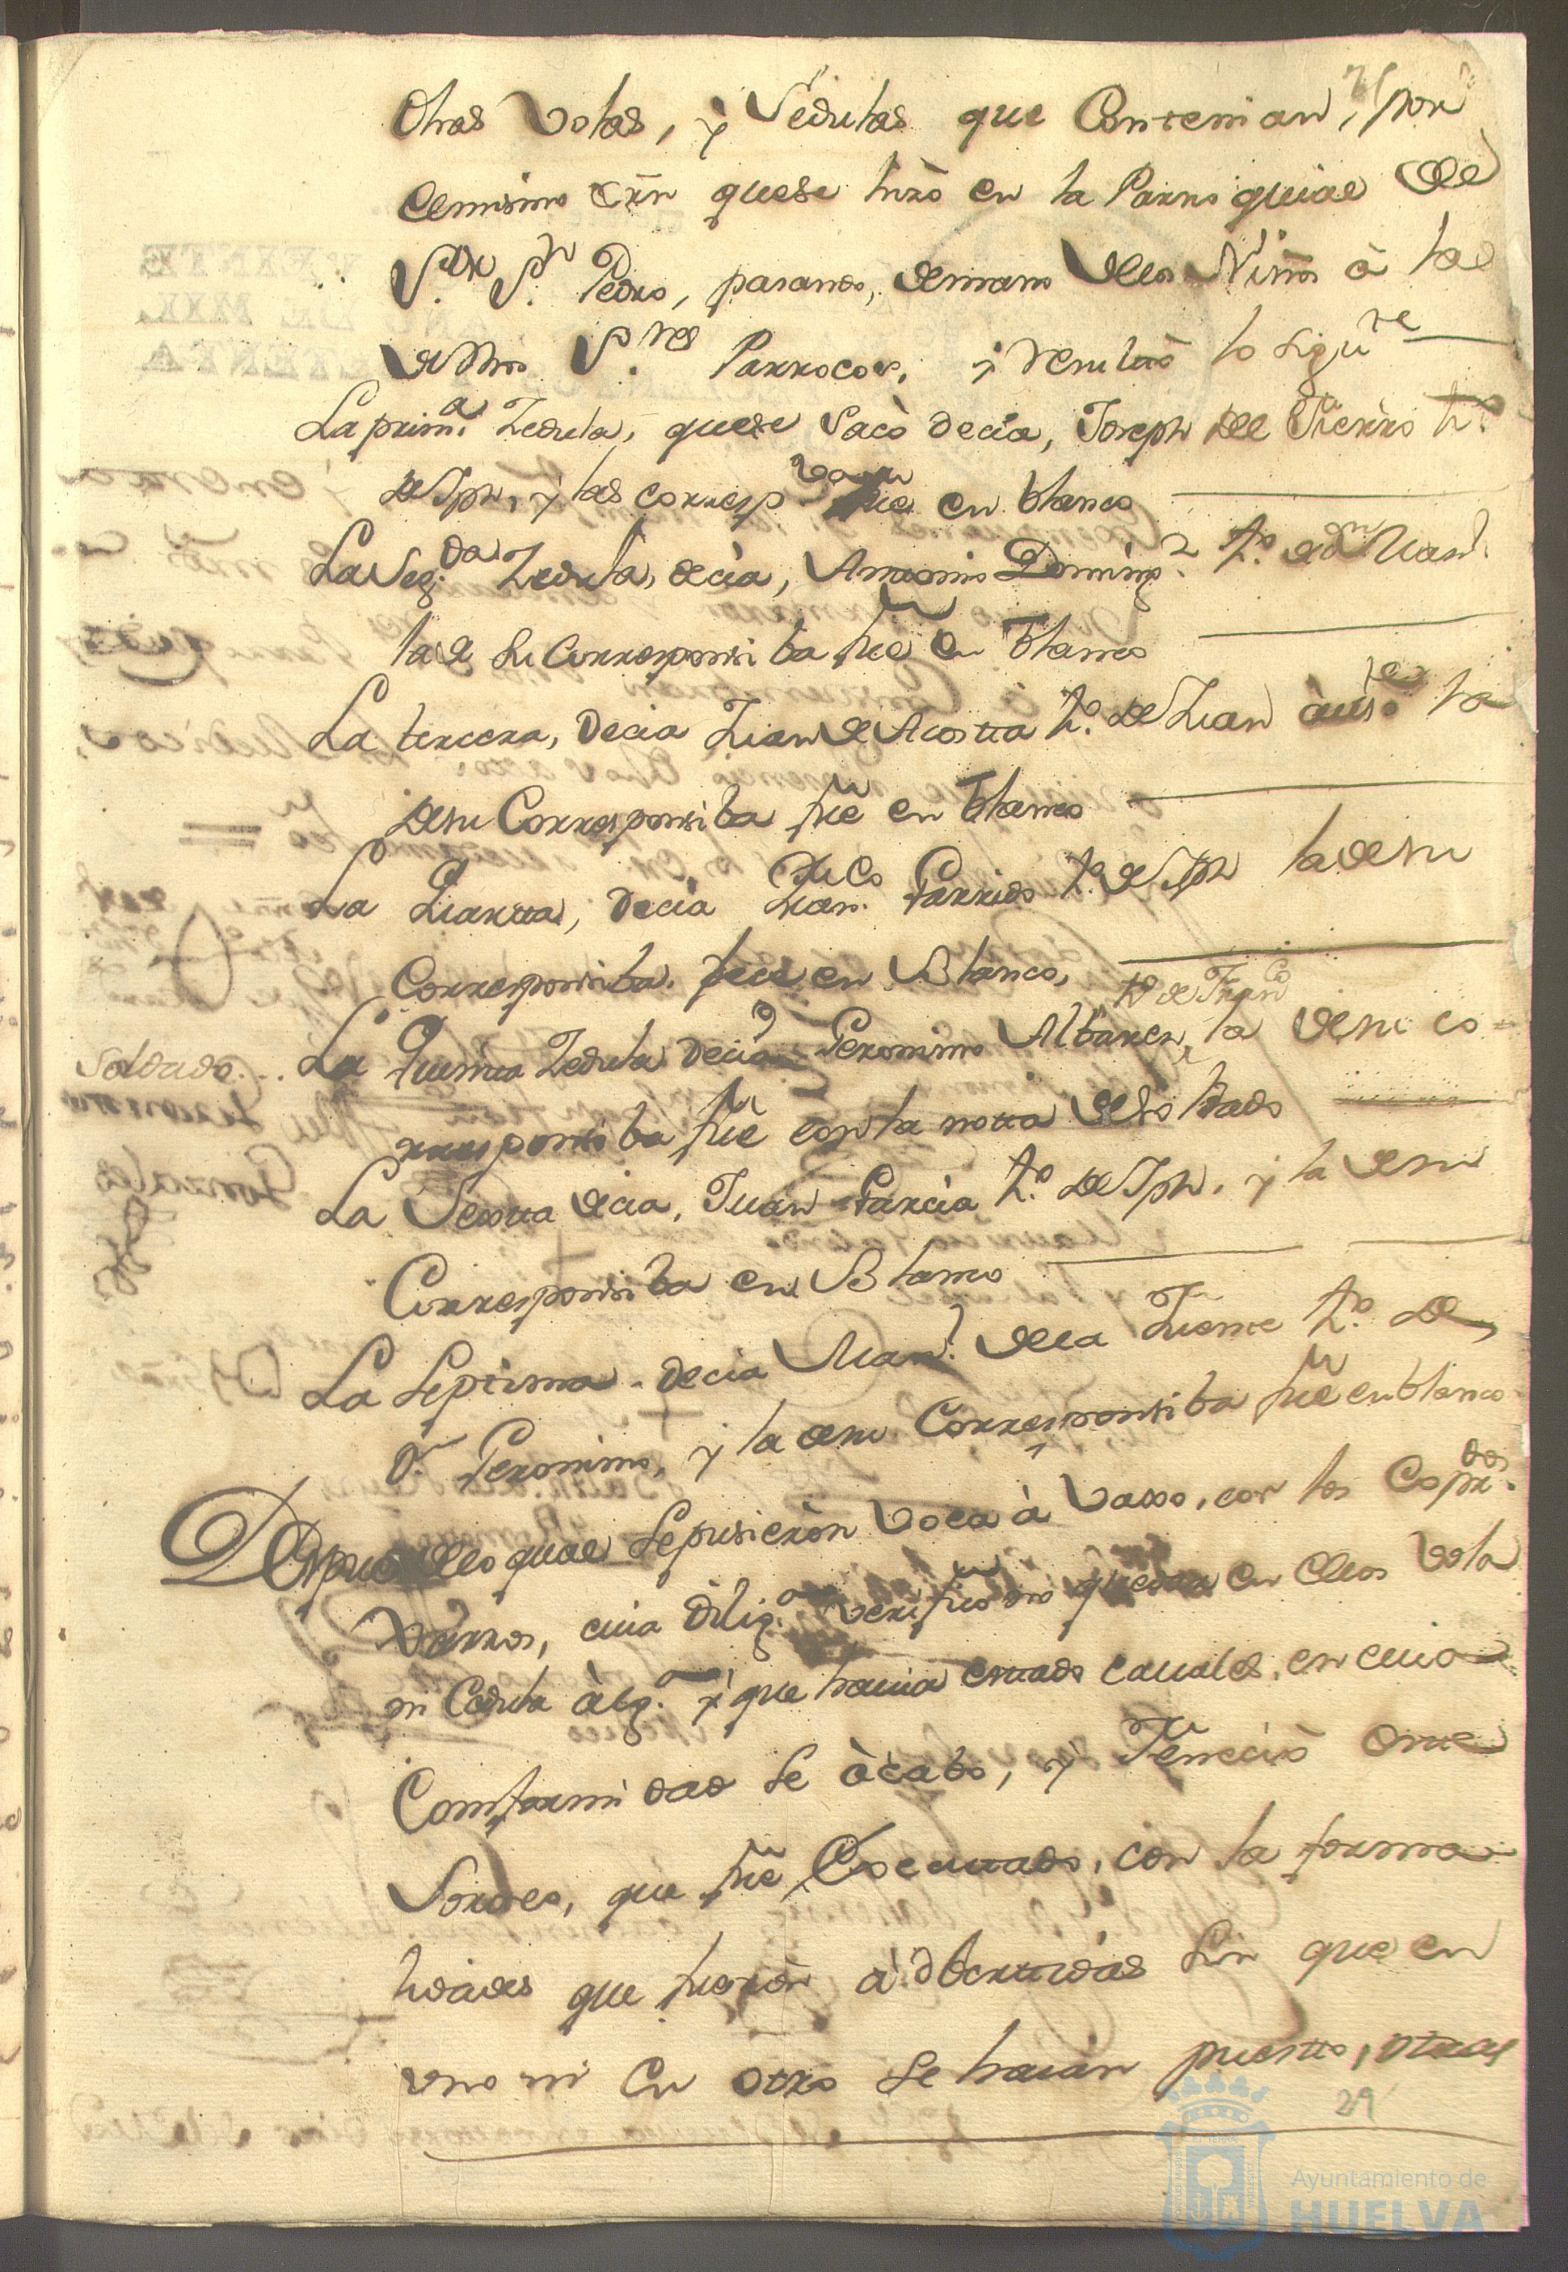 otras Volas, y Sedulas que Contenian, por
elmismo orn quese hizo en la Parroquial de
S.or S.n Pedro, pasando, demano delos Niños à las
de dhos S.res Parrocos, y resultò lo sigu.te
La prim.a Zedula, quese Sacò decia, Joseph del Fierro h.o
de Jph, y las corresp.va fue en blanco
La Seg.da Zedula, decia, Antonio Doming.z h.o de d.n Man.l
la de su Corresponsiba fue en Blanco
La tercera, decia Juan de Acosta h.o de Juan àus.te la
desu Corresponsiba fue en blanco
La Quarta, decia Fran.co Garrido h.o de Jph la desu
Corresponsiba fue en Blanco,
h.o de Fran.co
Soldado. La Quinta Zedula decia Geronimo Albarez, la desu co=
rresponsiba fue con la notta de Soldado
La Sexta decia, Juan Garcia h.o de Jph. y la desu
Corresponsiba en Blanco
La Septima decia Man.l dela Fuente h.o de
d.n Geronimo, y la desu Corresponsiba fue en blanco
Despues delo qual sepusieròn voca à vaxo, con los Copr.dos
Varros, cuia dilig.a verificò no quedar en ellos vola
ni Cedula àlg.a y que hauia estado cauales, en cuio
Comformidad se àcabò, y Feneciò este
Sorteo, que fue Executado, con la forma
lidades que fueròn àdbertidas sin que en
vno ni en otro se haian puesto, otras
29
Ayuntamiento de
HUELVA